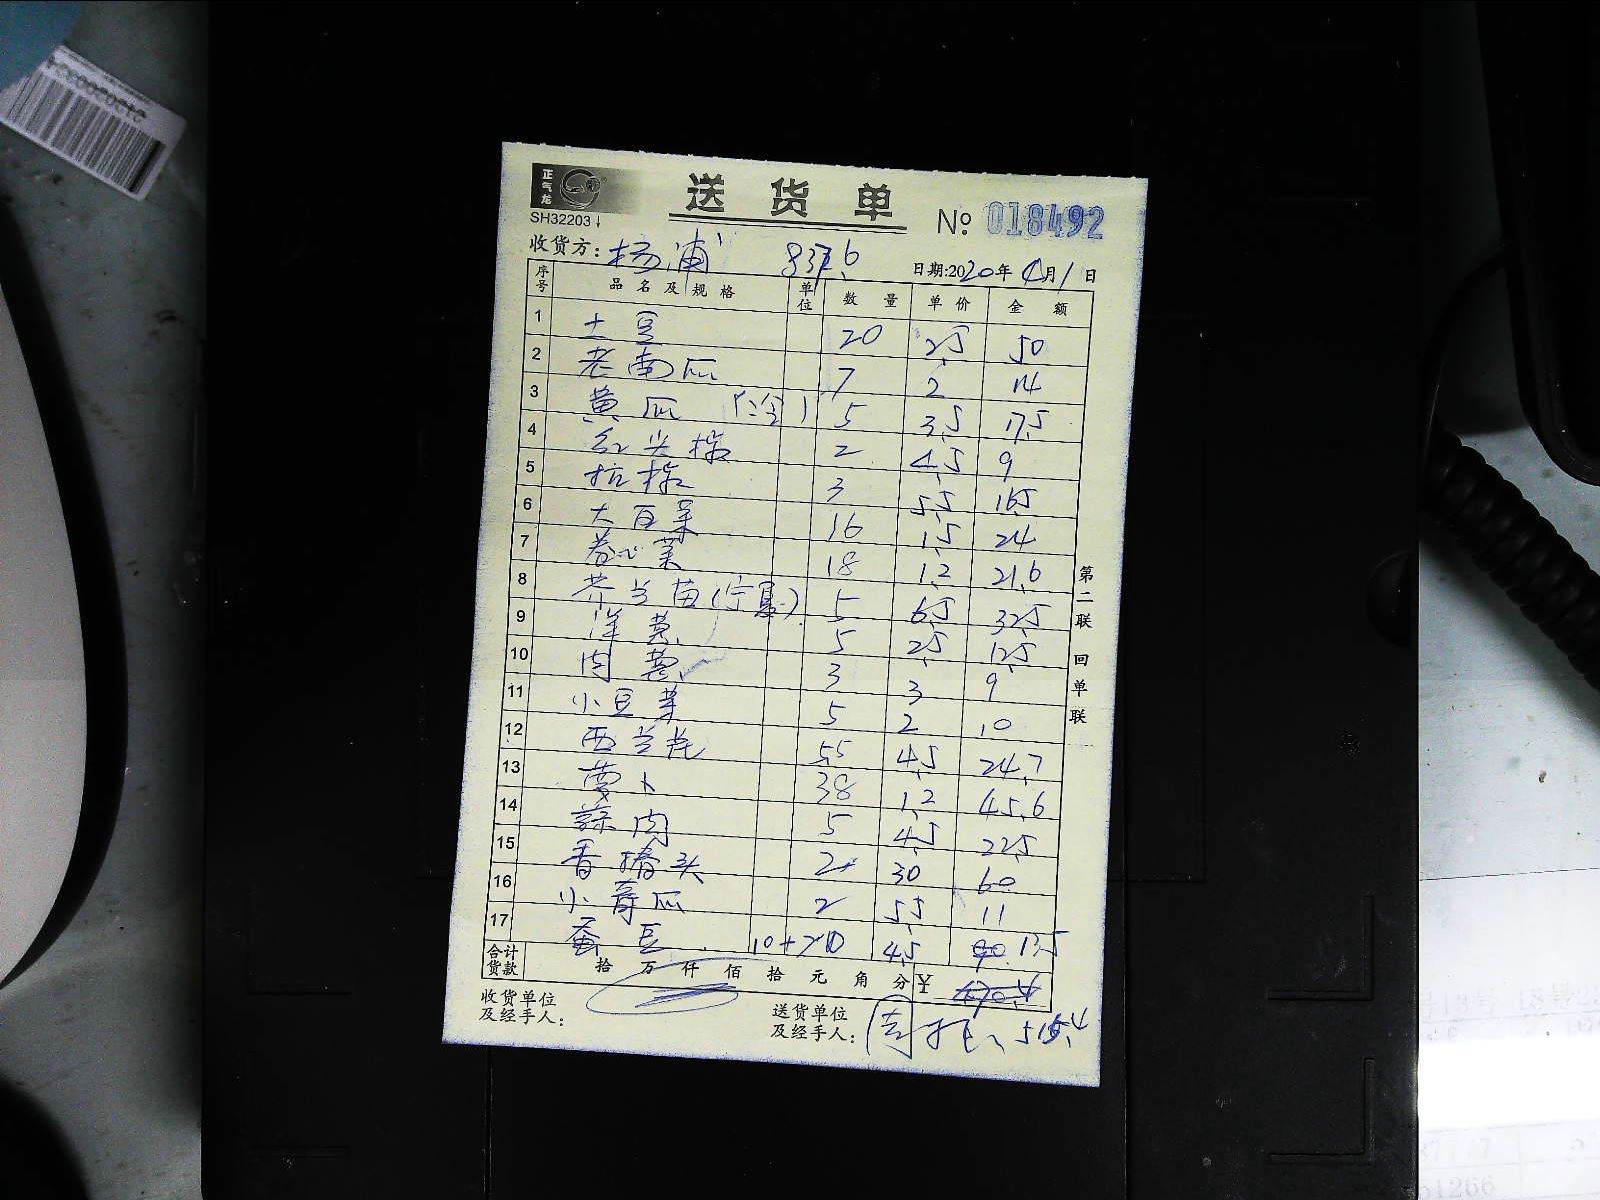 正气龙
SH32203
送货单
№ 018492
收货方: 杨浦 837.6
日期:2020年4月1日
序号 品名及规格 单位 数量 单价 金额
1 土豆 20 2.5 50
2 老南瓜 7 2 14
3 黄瓜 5 3.5 17.5
4 红尖椒 2 4.5 9
5 杭椒 3 5.5 16.5
6 大豆芽 16 1.5 24
7 卷心菜 18 1.2 21.6
8 芥兰苗(宁夏) 5 6.5 32.5
9 洋葱 5 2.5 12.5
10 肉葱 3 3 9
11 小豆芽 5 2 10
12 西兰花 5.5 4.5 24.7
13 萝卜 38 1.2 45.6
14 蒜肉 5 4.5 22.5
15 香椿头 2 30 60
16 小青瓜 2 5.5 11
17 蚕豆 10+20 4.5 90 135
合计货款 拾万仟佰拾元角分 ¥ 470.4
收货单位及经手人:
送货单位及经手人: 515.4
第二联 回单联